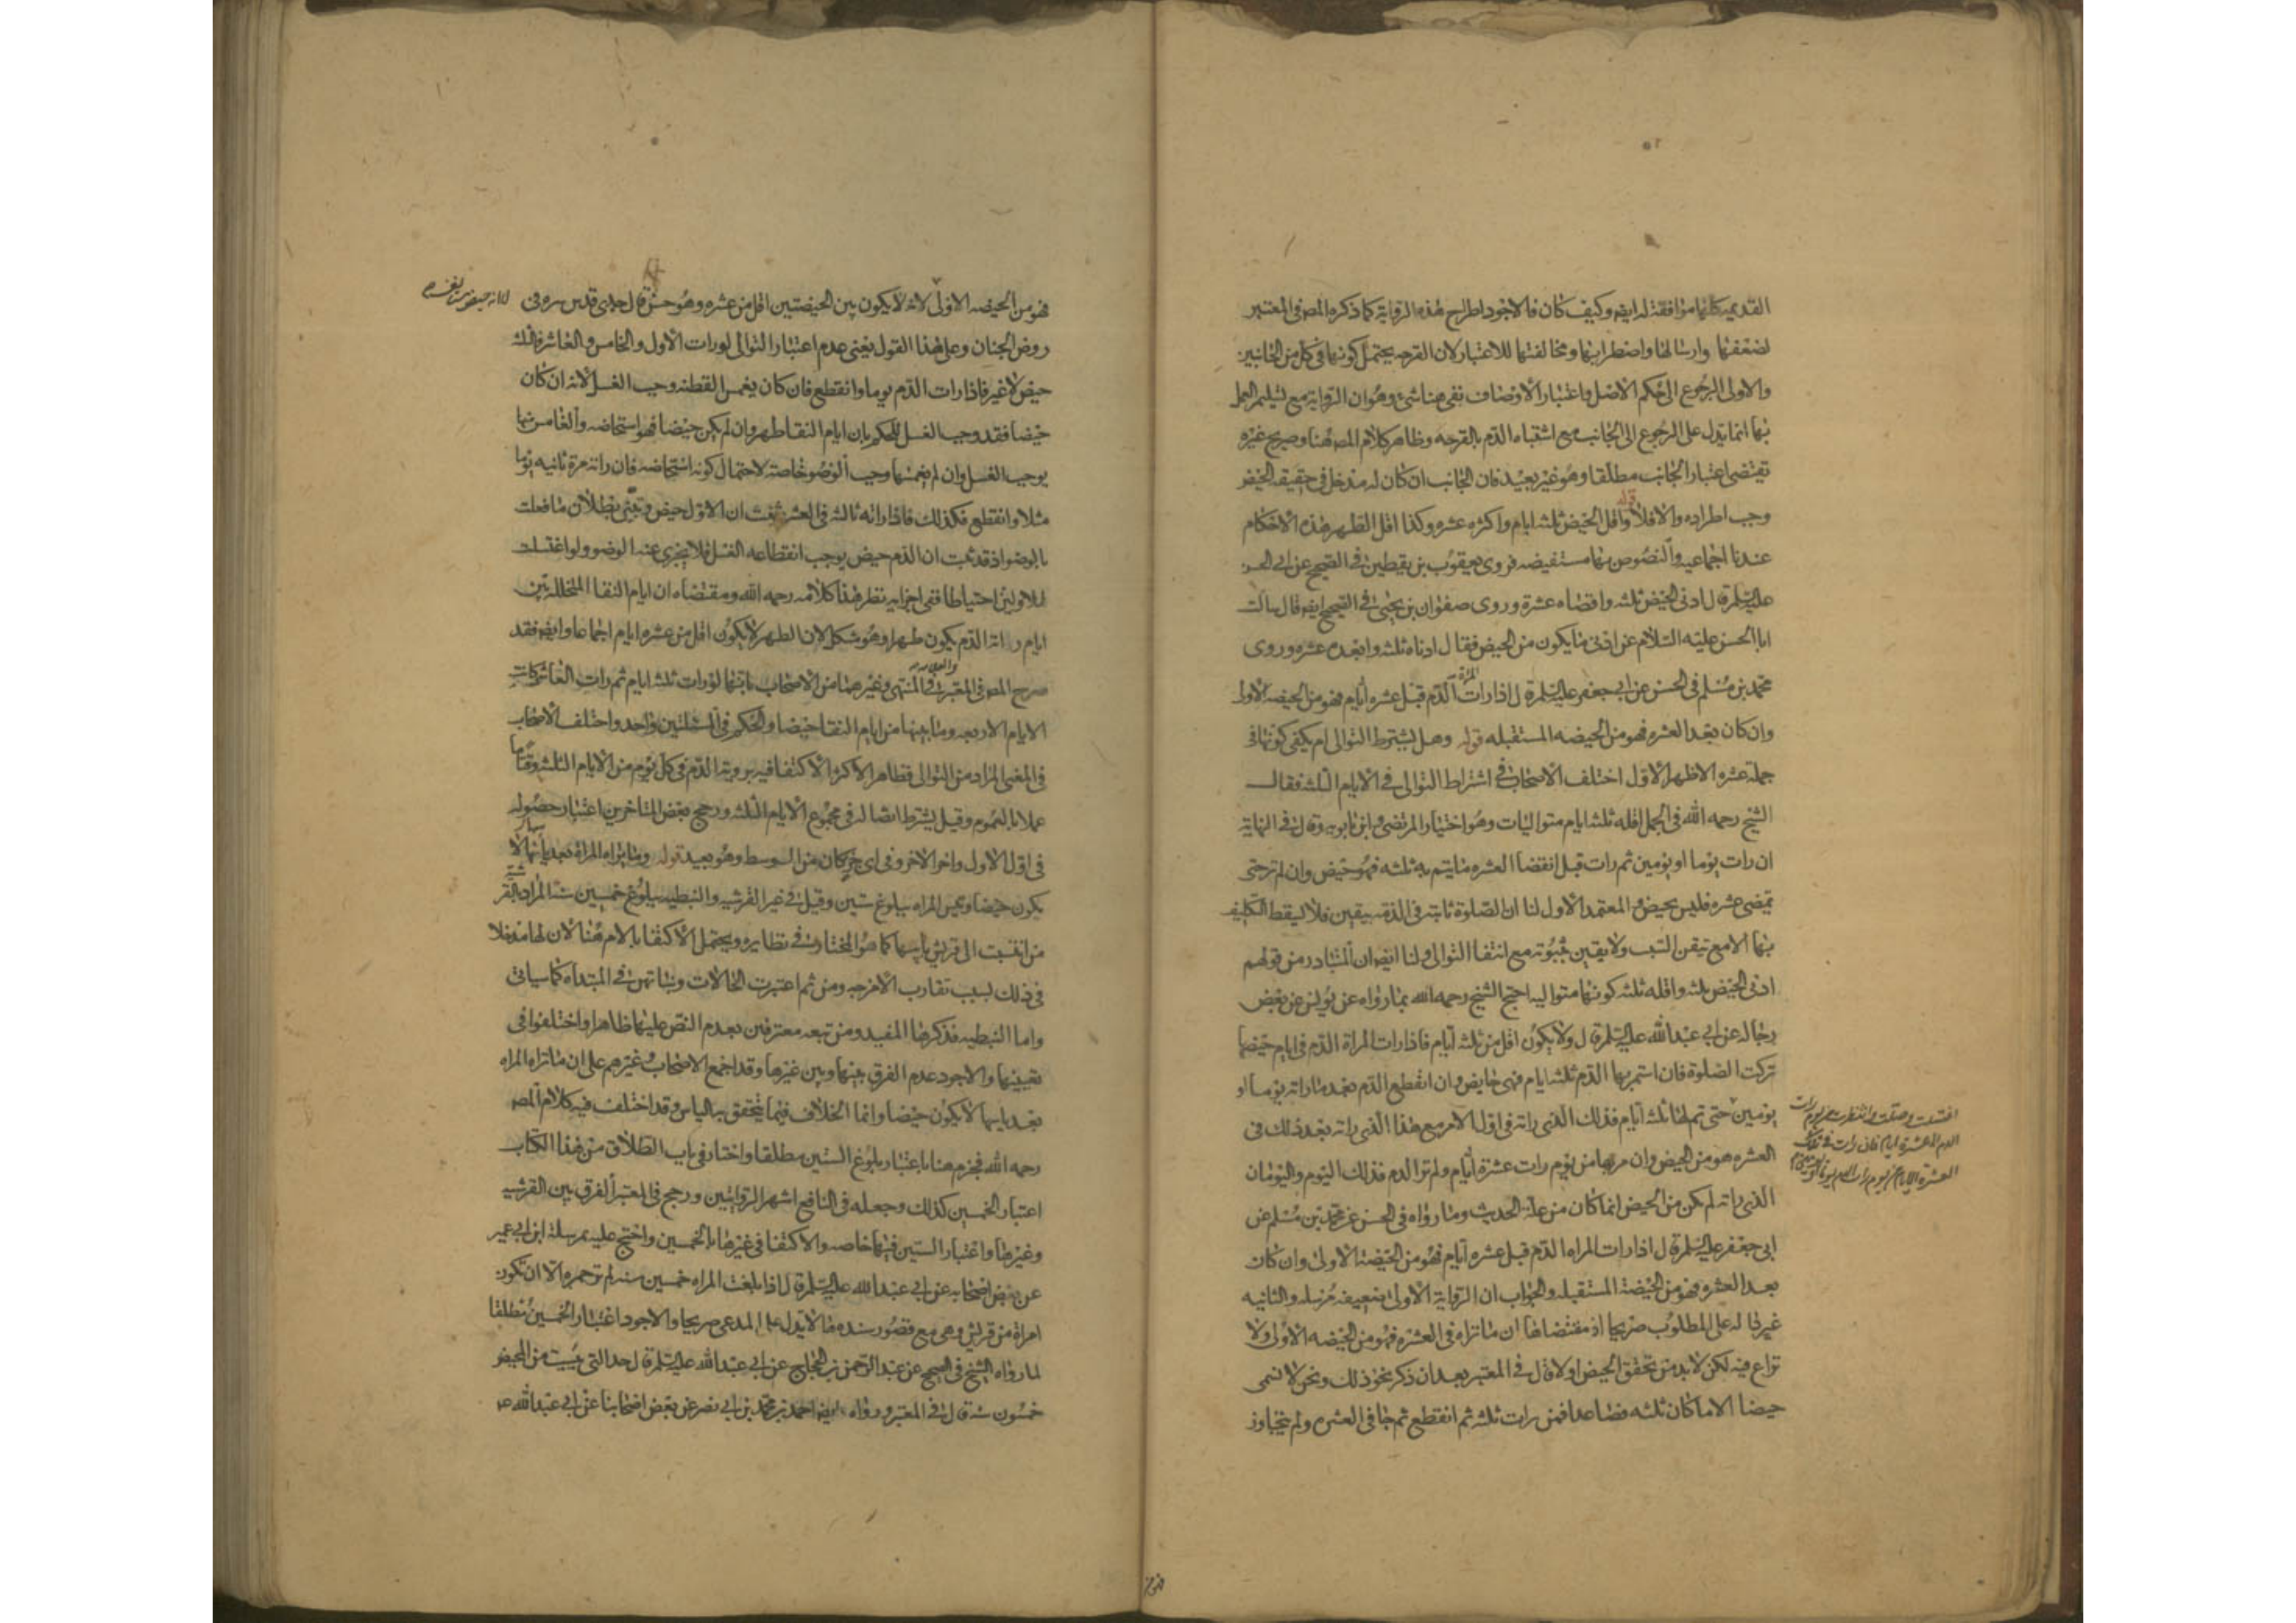 القديمة كلها موافقة له ايضا وكيف كان فالاجود اطراح هذه الرواية كما ذكره المصر في المعتبر
لضعفها وارسالها واضطرابها ومخالفتها للاعتبار لان القرحه يحتمل كونها في كل من الجانبين
والاولى الرجوع الى حكم الاصل واعتبار الاوصاف بقى هنا شئ وهو ان الرواية مع تسليم العمل
بها انما تدل على الرجوع الى الجانب مع اشتباه الدم بالقرحه وظاهر كلام المصر هنا وصريح غيره
تقتضى اعتبار الجانب مطلقا وهو غير بعيد فان الجانب ان كان له مدخل في حقيقه الحيض
وجب اطراده والا فلا قوله واقل الحيض ثلثه ايام واكثره عشره وكذا اقل الطهر هذه الاحكام
عندنا اجماعيه والنصوص بها مستفيضه فروى يعقوب بن يقطين في الصحيح عن ابى الحسن
عليه السلم قال ادنى الحيض ثلثه واقصاه عشرة وروى صفوان بن يحيى في الصحيح ايضا قال سالت
ابا الحسن عليه السلام عن ادنى ما يكون من الحيض فقال ادناه ثلثه وابعده عشره وروى
محمد بن مسلم في الحسن عن ابى جعفر عليه السلم قال اذا رات المراة الدم قبل عشره ايام فهو من الحيضه الاولى
وان كان بعد العشره فهو من الحيضه المستقبله قوله وهل يشترط التوالى ام يكفى كونها في
جملة عشره الاظهر الاول اختلف الاصحاب في اشتراط التوالى في الايام الثلثه فقال
الشيخ رحمه الله في الجمل اقله ثلثه ايام متواليات وهو اختيار المرتضى وابن بابويه وقال في النهاية
ان رات يوما او يومين ثم رات قبل انقضا العشره ما يتم به ثلثه فهو حيض وان لم ترحتى
تمضى عشره فليس بحيض والمعتمد الاول لنا ان الصلوة ثابته في الذمة بيقين فلا يسقط التكليف
بها الا مع تيقن السبب ولا يقين بثبوته مع انتفا التوالى ولنا ايضا ان المتبادر من قولهم
ادنى الحيض ثلثه واقله ثلثه كونها متواليه احتج الشيخ رحمه الله بما رواه عن يونس عن بعض
رجاله عن ابى عبد الله عليه السلم قال ولا يكون اقل من ثلثه ايام فاذا رات المراة الدم في ايام حيضها
تركت الصلوة فان استمر بها الدم ثلثه ايام فهى حايض وان انقطع الدم بعد ما راته يوما او
يومين حتى تم لها ثلثه ايام فذلك الذى راته في اول الامر مع هذا الذى راته بعد ذلك في
اغتسلت وصلت وانتظرت من يوم رات
الدم الى عشرة ايام فان رات في تلك
العشرة الايام من يوم رات الدم يوما او يومين
العشره هو من الحيض وان مر بها من يوم رات عشرة ايام ولم تر الدم فذلك اليوم واليومان
الذى راته لم يكن من الحيض انما كان من علة الحديث وما رواه في الحسن عن محمد بن مسلم عن
ابى جعفر عليه السلم قال اذا رات المراه الدم قبل عشره ايام فهو من الحيضة الاولى وان كان
بعد العشره فهو من الحيضة المستقبله والجواب ان الرواية الاولى ضعيفه مرسله والثانيه
غير داله على المطلوب صريحا اذ مقتضاها ان ما تراه في العشره فهو من الحيضه الاولى ولا
نزاع فيه لكن لا بد من تحقق الحيض اولا قال في المعتبر بعد ان ذكر نحو ذلك ونحن لا نسمى
حيضا الا ما كان ثلثه فصاعدا فمن رات ثلثه ثم انقطع ثم جا في العشره ولم يتجاوز
فهو من الحيضه الاولى لانه لا يكون بين الحيضتين اقل من عشره وهو حسن قال جدى قدس سره في
روض الجنان وعلى هذا القول يعنى عدم اعتبار التوالى لو رات الاول والخامس والعاشر فالثلثه
حيض لا غير فاذا رات الدم يوما وانقطع فان كان يغمس القطنه وجب الغسل لانه ان كان
حيضا فقد وجب الغسل للحكم بان ايام النقا طهر وان لم يكن حيضا فهو استحاضه والغامس منها
يوجب الغسل وان لم يغمسها وجب الوضو خاصة لاحتمال كونه استحاضه فان راته مرة ثانيه يوما
مثلا وانقطع فكذلك فاذا راته ثالثه في العشره ثبت ان الاول حيض وتبين بطلان ما فعلت
بالوضو اذ قد ثبت ان الدم حيض يوجب انقطاعه الغسل فلا يجزى عنه الوضو ولو اغتسلت
للاولين احتياطا ففى اجزايه نظر هذا كلامه رحمه الله ومقتضاه ان ايام النقا المتخلله بين
ايام رؤية الدم يكون طهرا وهو مشكل لان الطهر لا يكون اقل من عشره ايام اجماعا وايضا فقد
صرح المصر في المعتبر والعلامه في المنتهى وغيرهما من الاصحاب بانها لو رات ثلثه ايام ثم رات العاشر كانت
الايام الاربعه وما بينها من ايام النقا حيضا والحكم في المسئلتين واحد واختلف الاصحاب
في المعنى المراد من التوالى فظاهر الاكثر الاكتفا فيه بروية الدم في كل يوم من الايام الثلثه وقتا ما
عملا بالعموم وقيل يشترط اتصاله في مجموع الايام الثلثه ورجح بعض المتاخرين اعتبار حصوله
في اول الاول واخر الاخر وفى اى جزء كان من الوسط وهو بعيد قوله وما تراه المراة بعد ياسها لا
يكون حيضا وتيس المراه ببلوغ ستين وقيل في غير القرشيه والنبطيه ببلوغ خمسين سنة المراد بالقرشية
من انتسبت الى قريش بابيها كما هو المختار في نظايره ويحتمل الاكتفا بالام هنا لان لها مدخلا
في ذلك بسبب تقارب الامزجه ومن ثم اعتبرت الخالات وبناتهن في المبتداه كما سياتى
واما النبطيه فذكرها المفيد ومن تبعه معترفين بعدم النص عليها ظاهرا واختلفوا في
تعيينها والاجود عدم الفرق بينها وبين غيرها وقد اجمع الاصحاب وغيرهم على ان ما تراه المراه
بعد ياسها لا يكون حيضا وانما الخلاف فيما يتحقق به الياس وقد اختلف فيه كلام المصر
رحمه الله فجزم هنا باعتبار بلوغ الستين مطلقا واختار في باب الطلاق من هذا الكتاب
اعتبار الخمسين كذلك وجعله في النافع اشهر الروايتين ورجح في المعتبر الفرق بين القرشيه
وغيرها واعتبار الستين فيها خاصه والاكتفا في غيرها بالخمسين واحتج عليه بمرسلة ابن ابى عمير
عن بعض اصحابه عن ابى عبد الله عليه السلم قال اذا بلغت المراه خمسين سنه لم تر حمره الا ان تكون
امراة من قريش وهى مع قصور سنده ما لا تدل على المدعى صريحا والاجود اعتبار الخمسين مطلقا
لما رواه الشيخ في الصحيح عن عبد الرحمن بن الحجاج عن ابى عبد الله عليه السلم قال حد التى يئست من المحيض
خمسون سنه قال في المعتبر ورواه ايضا احمد بن محمد بن ابى نصر عن بعض اصحابنا عن ابى عبد الله ع